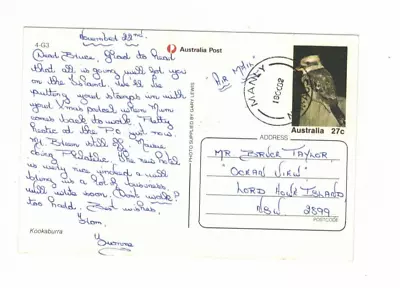 November 22nd.
4-G3
Dear Bruce, Glad to hear
that all is going well for you
on the Island. We'll be
putting your stamps in with
your Xmas parcel when Mum
comes back to work. Pretty
hectic at the P.O. just now.
still off. Maree
doing Philatelic. The new hotel
is very nice indeed & will
bring us a lot of business.
will write soon. Don't work
too hard. Best wishes,
from
Yvonne
Kookaburra
Australia Post
Air Mail
MANLY
Australia 27c
PHOTO SUPPLIED BY GARY LEWIS
ADDRESS
MR BRUCE TAYLOR
"OCEAN VIEW"
LORD HOWE ISLAND
NSW 2899
POSTCODE